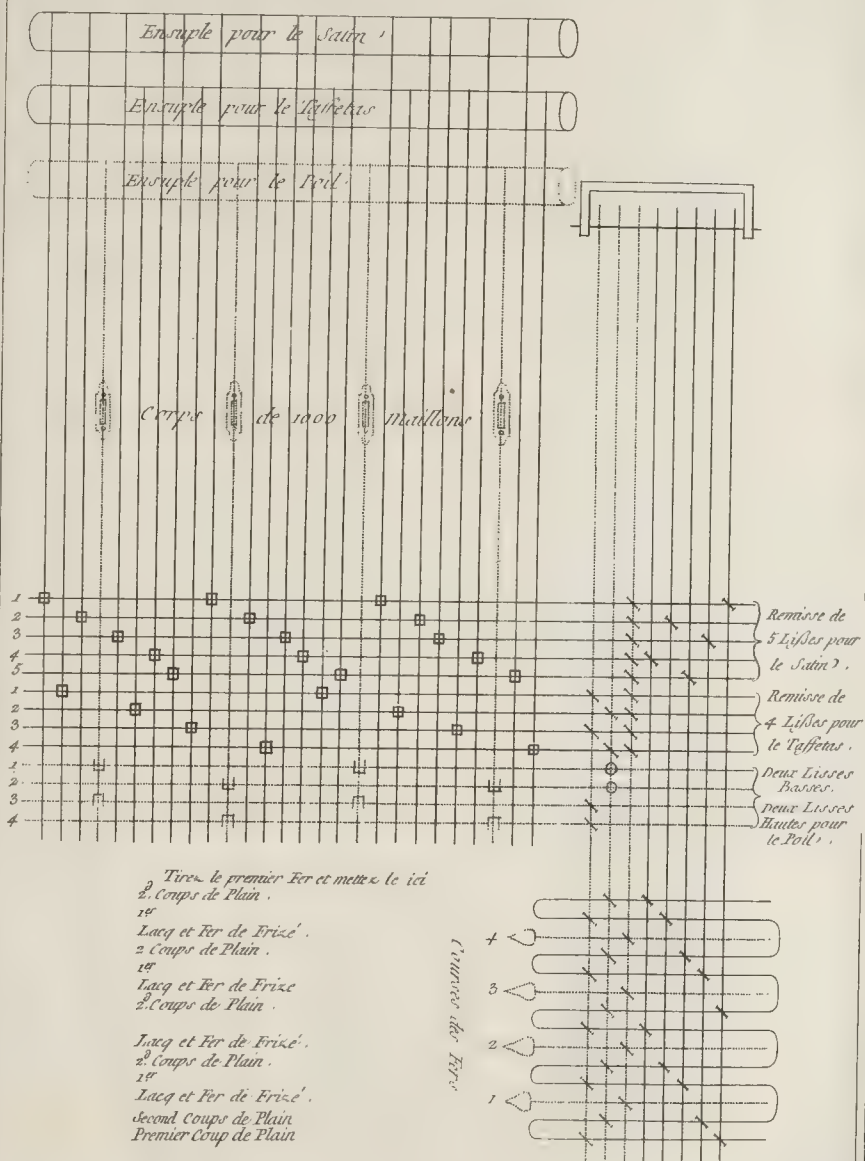 Ensuple pour le Satin.
Ensuple pour le Taffetas
Ensuple pour le Poil.
Corps de 1000 maillons
1
2
3
4
5
1
2
3
4
1
2
3
4
Remisse de
5 Lißes pour
le Satin.
Remisse de
4 Lißes pour
le Taffetas.
Deux Lisses
Basses.
Deux Lisses
Hautes pour
le Poil.
Tirez le premier Fer et mettez le ici
2.d Coups de Plain.
1er
Lacq et Fer de Frizé.
2 Coups de Plain.
1er
Lacq et Fer de Frize
2.d Coups de Plain.
Lacq et Fer de Frizé.
2.d Coups de Plain.
1er
Lacq et Fer de Frizé.
Second Coups de Plain
Premier Coup de Plain
Courses des Fers
4
3
2
1